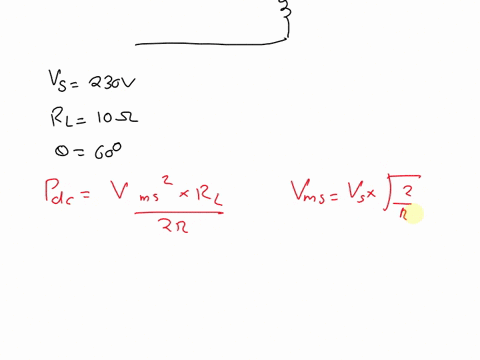 Vs = 230V
RL = 10Ω
θ = 60°
Pdc = V ms² × RL / 2π
Vms = Vs × √2/π